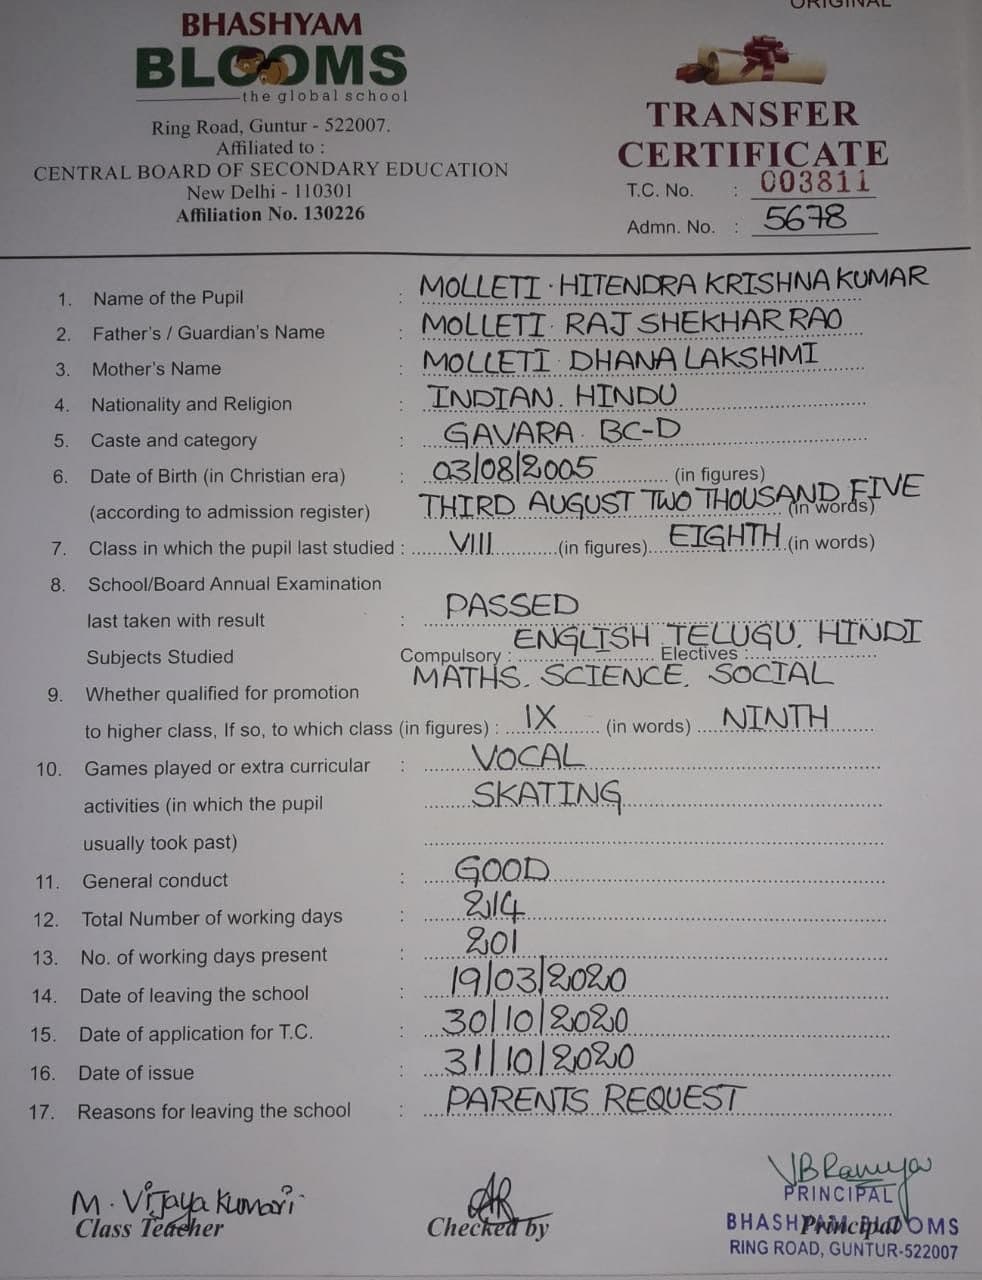 ORIGINAL
BHASHYAM
BLOOMS
the global school
Ring Road, Guntur - 522007.
Affiliated to :
CENTRAL BOARD OF SECONDARY EDUCATION
New Delhi - 110301
Affiliation No. 130226
TRANSFER
CERTIFICATE
T.C. No. : 003811
Admn. No. : 5678
1. Name of the Pupil : MOLLETI . HITENDRA KRISHNA KUMAR
2. Father's / Guardian's Name : MOLLETI . RAJ SHEKHAR RAO
3. Mother's Name : MOLLETI DHANA LAKSHMI
4. Nationality and Religion : INDIAN. HINDU
5. Caste and category : GAVARA. BC-D
6. Date of Birth (in Christian era) : 03/08/2005 (in figures)
(according to admission register) THIRD AUGUST TWO THOUSAND FIVE (in words)
7. Class in which the pupil last studied : VIII (in figures) EIGHTH (in words)
8. School/Board Annual Examination
last taken with result : PASSED
Subjects Studied Compulsory : ENGLISH TELUGU, HINDI Electives :
MATHS. SCIENCE. SOCIAL
9. Whether qualified for promotion
to higher class, If so, to which class (in figures) : IX (in words) NINTH
10. Games played or extra curricular : VOCAL
activities (in which the pupil SKATING
usually took past)
11. General conduct : GOOD
12. Total Number of working days : 214
13. No. of working days present : 201
14. Date of leaving the school : 19/03/2020
15. Date of application for T.C. : 30/10/2020
16. Date of issue : 31/10/2020
17. Reasons for leaving the school : PARENTS REQUEST
M. Vijaya Kumari
Class Teacher
Checked by
VB Ramya
PRINCIPAL
Principal
BHASHYAM BLOOMS
RING ROAD, GUNTUR-522007